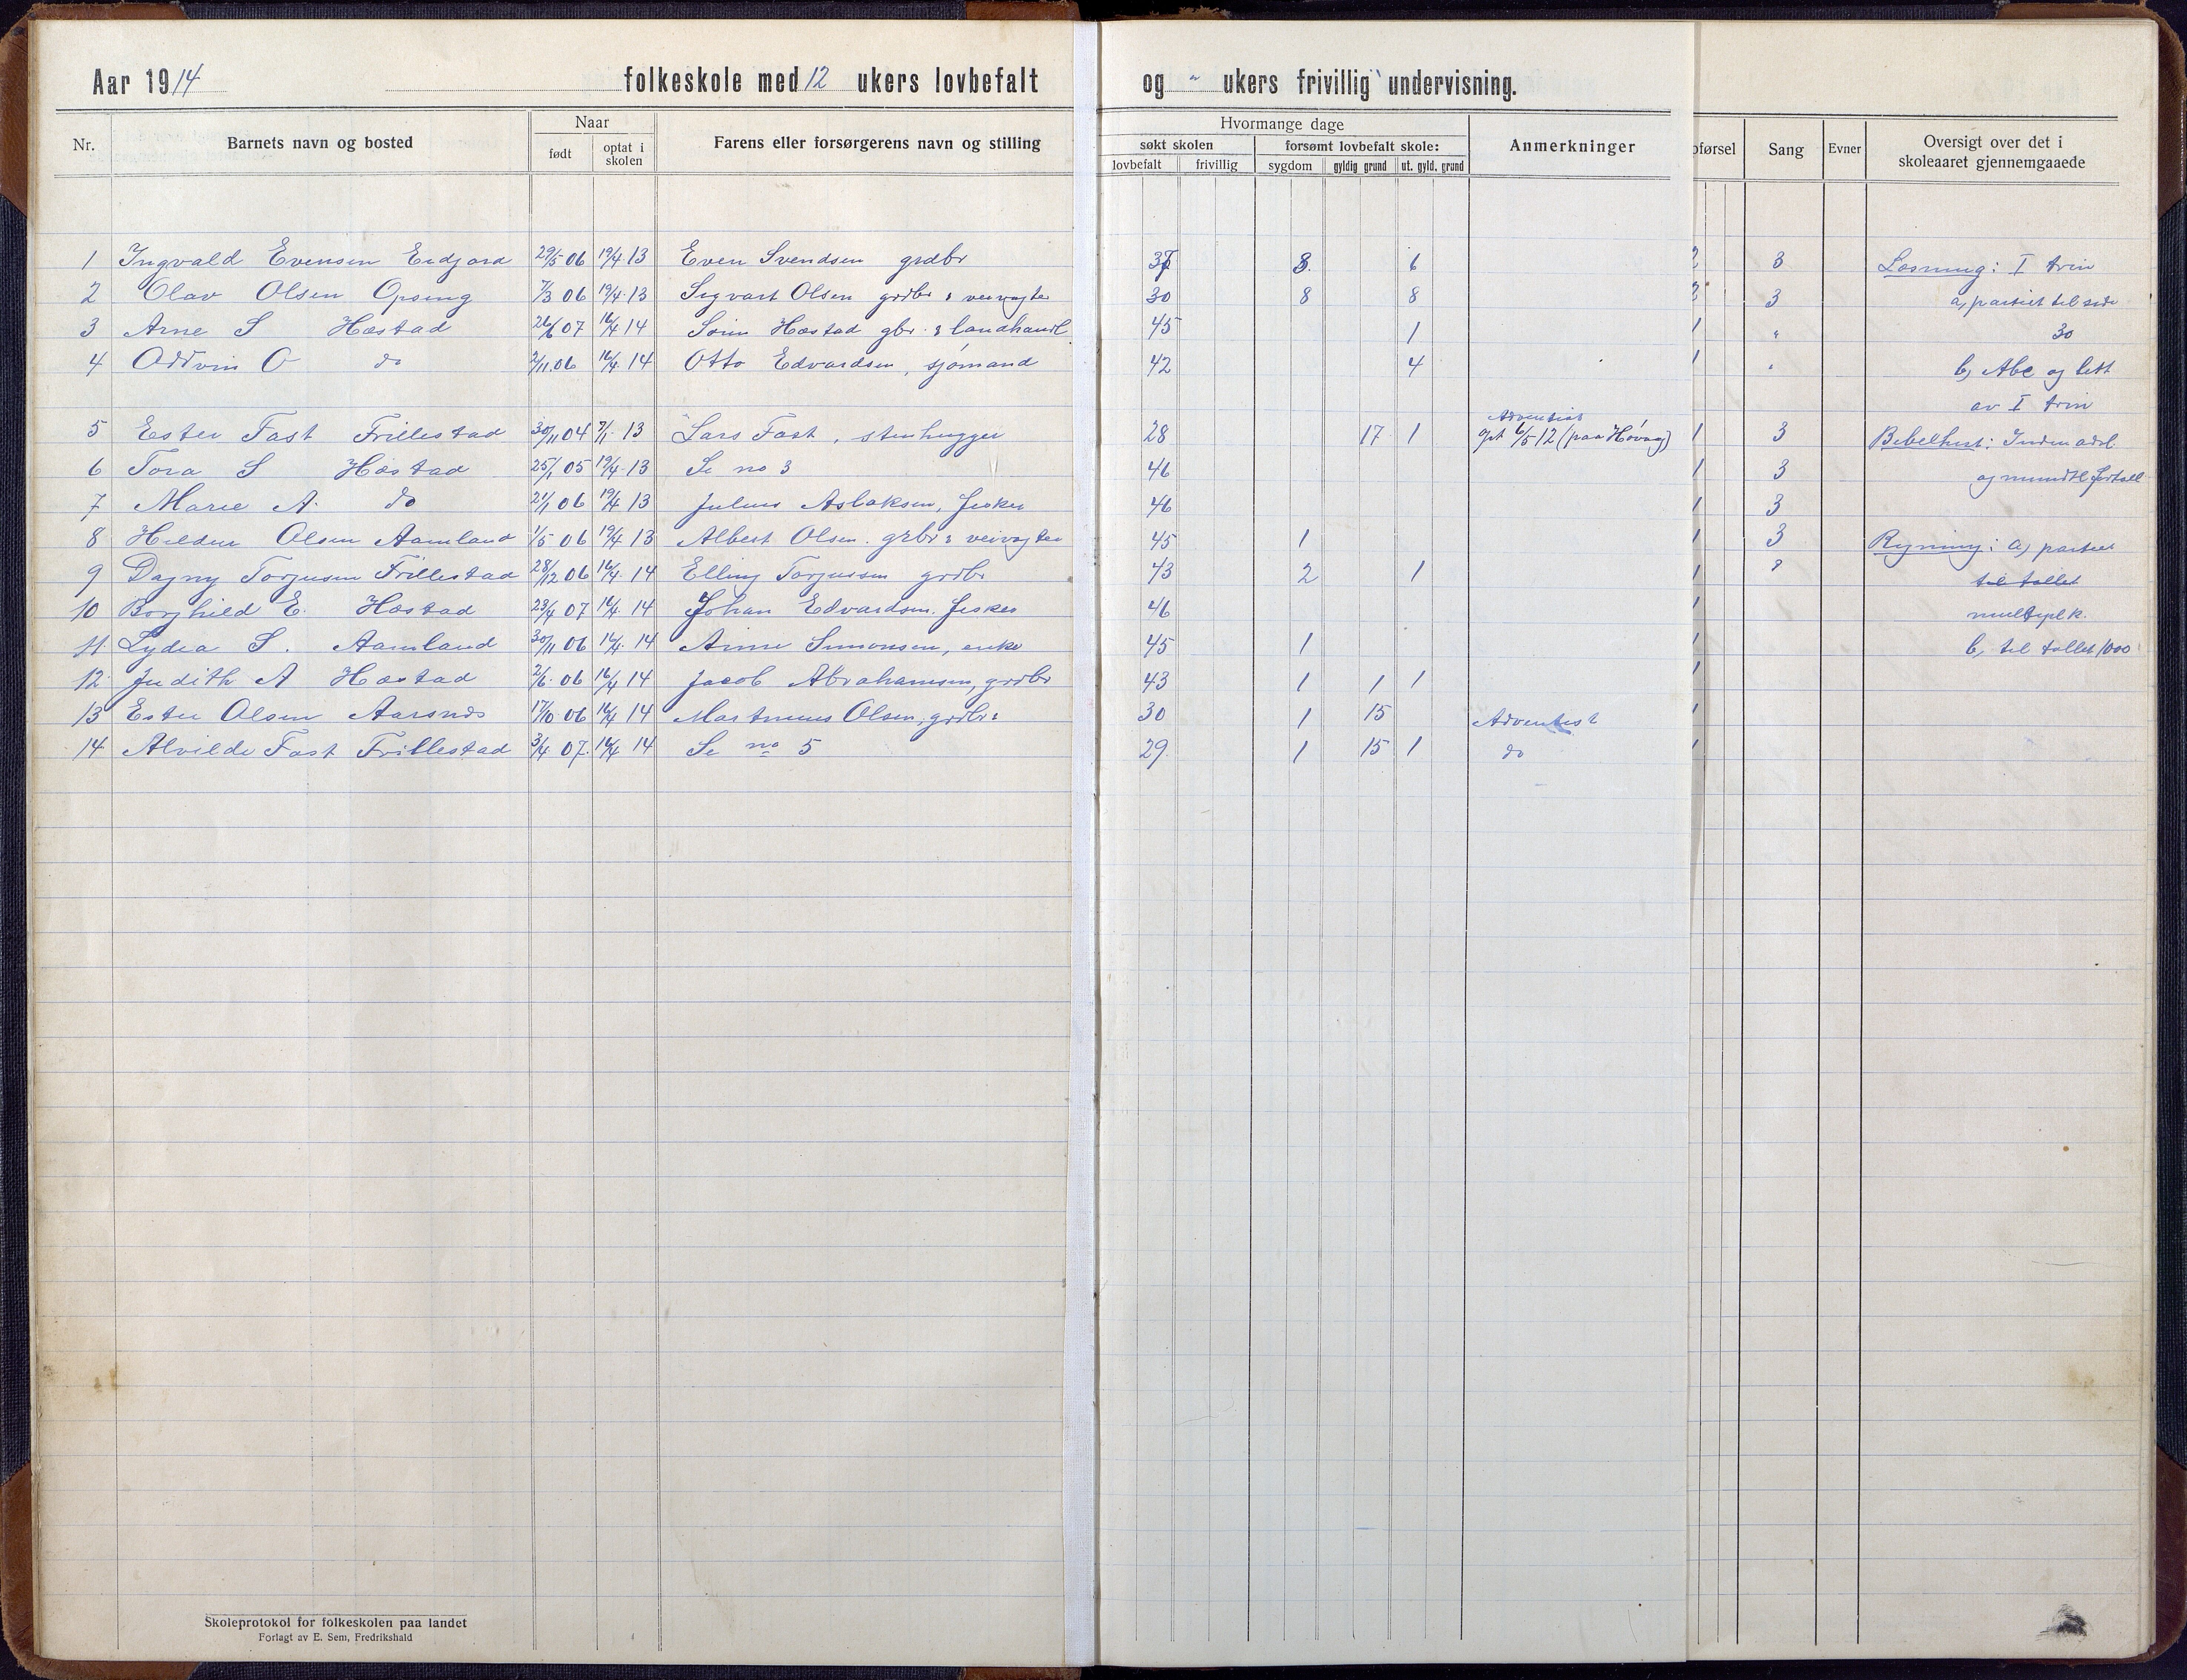 Aar 1914 folkeskole med 12 ukers lovbefalt og " ukers frivillig undervisning.
Nr. Barnets navn og bosted Naar født optat i skolen Farens eller forsørgerens navn og stilling Hvormange dage søkt skolen lovbefalt frivillig forsømt lovbefalt skole: sygdom gyldig grund ut. gyld. grund Anmerkninger førsel Sang Evner Oversigt over det i skoleaaret gjennemgaaede
1 Ingvald Evensen Eidjord 29/5 06 19/4 13 Even Svendsen grdbr 37 8 6 2 3 Læsning: I trin
2 Olav Olsen Opseng 7/3 06 19/4 13 Sigvart Olsen grdbr & veivogter 30 8 8 2 3 a, partiet til side
3 Arne S Hæstad 26/6 07 16/4 14 Hæstad gbr & landhandl 45 1 1 " 30
4 Oddvin O do 2/11 06 16/4 14 Otto Edvardsen, sjømand 42 4 1 " b, Abc og litt
av I trin
5 Ester Fast Frillestad 30/11 04 7/1 13 Lars Fast, stenhugger 28 17 1 Adventist opt 6/5 12 (paa Høvaag) 1 3 Bibelhist:
6 Tora S Hæstad 25/1 05 19/4 13 Se no 3 46 1 3 og mundtl
7 Marie A. do 21/1 06 19/4 13 Julius Aslaksen, fisker 46 1 3
8 Olsen Aamland 1/5 06 19/4 13 Albert Olsen. grbr & veivogter 45 1 1 3 Regning: a, partiet
9 Dagny Torjusen Frillestad 28/12 06 16/4 14 Elling Torjussen grdbr 43 2 1 1 " til tallet
10 Borghild E. Hæstad 23/4 07 16/4 14 Johan Edvardsen. fisker 46 1 multiplk.
11 Lydia S. Aamland 30/11 06 16/4 14 Simonsen, enke 45 1 1 b, til tallet 1000
12 Judith A Hæstad 2/6 06 16/4 14 Jacob Abrahamsen, grdbr 43 1 1 1 1
13 Ester Olsen Aarsnes 17/10 06 16/4 14 Martinius Olsen, grdbr 30 1 15 Adventist 1
14 Alvilde Fast Frillestad 3/4 07 16/4 14 Se no 5 29 1 15 1 do 1
Skoleprotokol for folkeskolen paa landet
Forlagt av E. Sem, Fredrikshald